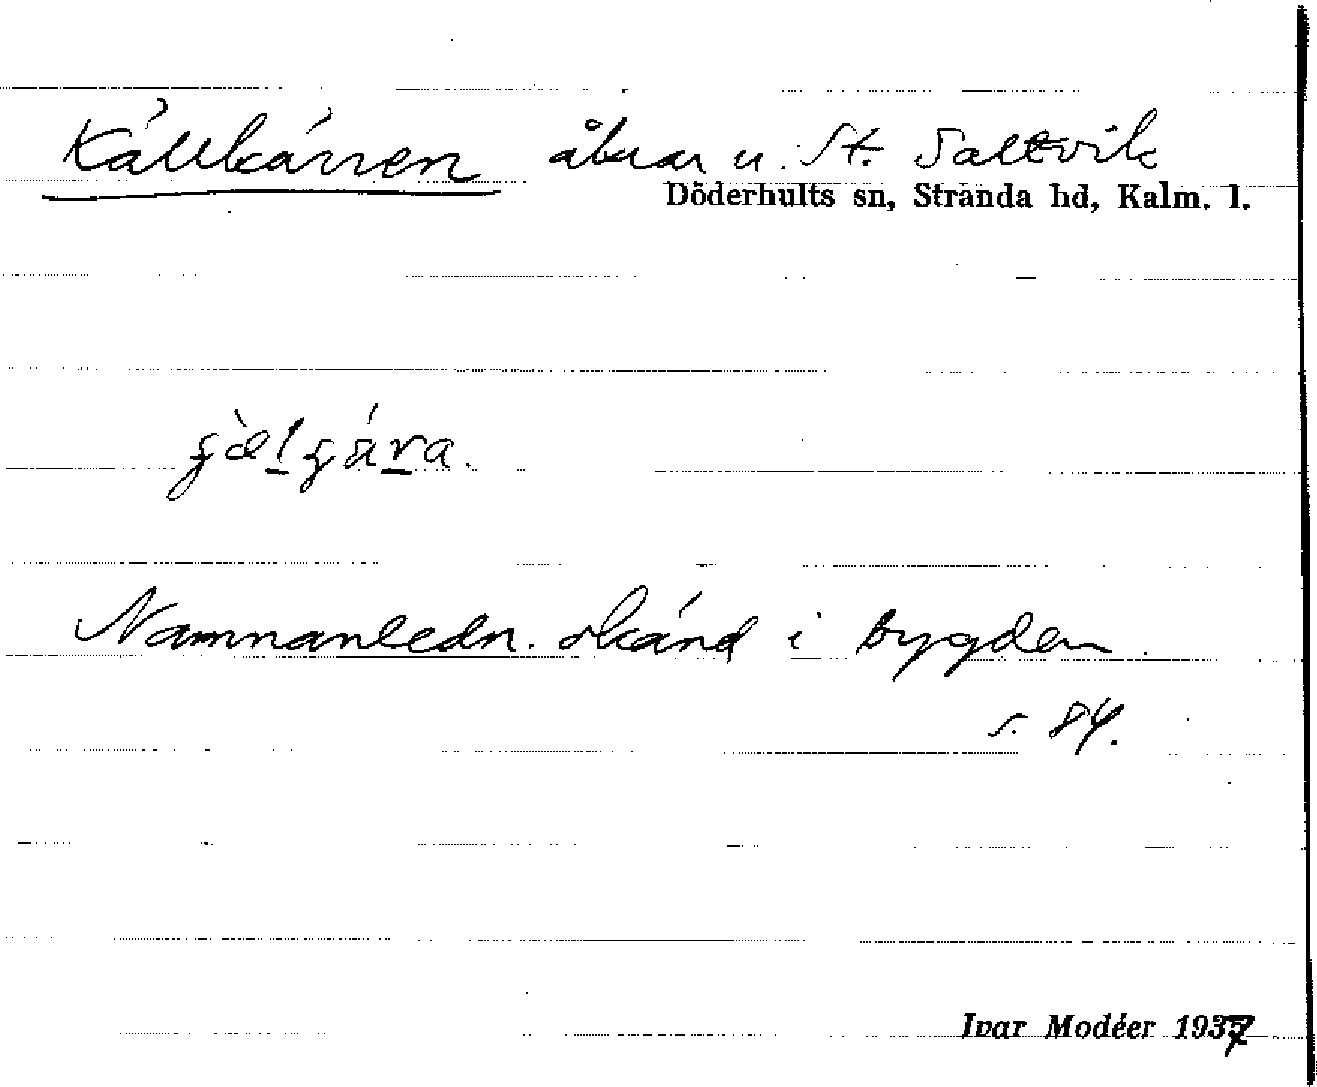 Källkärren åkrar u. St. Saltvik
Döderhults sn, Stranda hd, Kalm. l.
Namnanledn. okänd i bygden
s. 84.
Ivar Modéer 1937